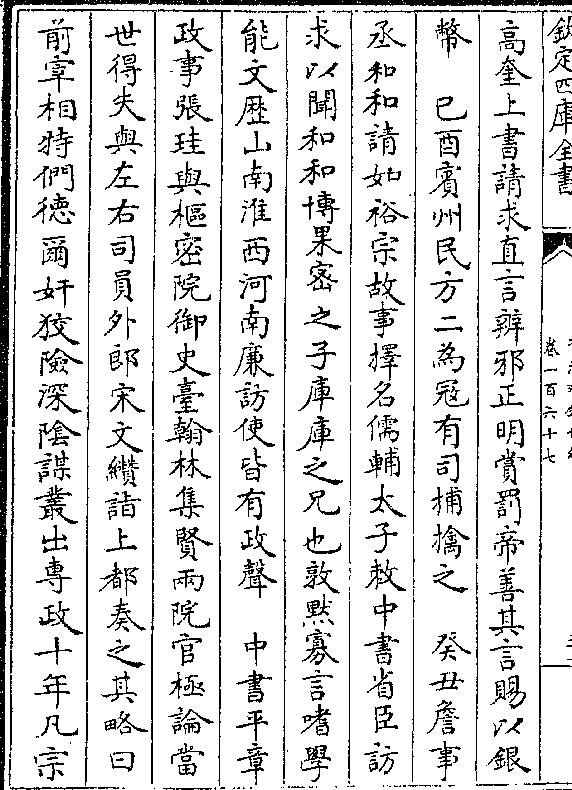 欽定四庫全書
卷一百六十七
高奎上書請求直言辨邪正明賞罰帝善其言賜以銀
幣　已酉賓州民方二為冦有司捕擒之　癸丑詹事
丞和和請如裕宗故事擇名儒輔太子敕中書省臣訪
求以聞和和博果密之子庫庫之兄也敦默寡言嗜學
能文歴山南淮西河南廉訪使皆有政聲　中書平章
政事張珪與樞密院御史臺翰林集賢兩院官極論當
世得失與左右司員外郎宋文纘詣上都奏之其略曰
前宰相特們德爾奸狡險深陰謀叢出専政十年凡宗